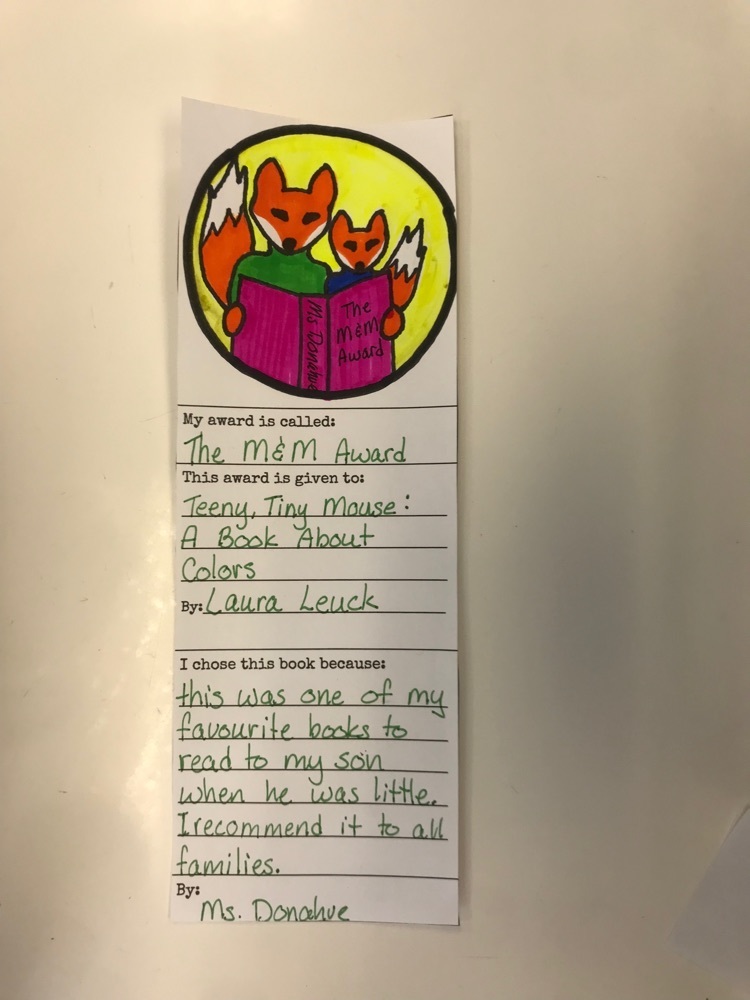 Ms Donahue
The
M&M
Award
My award is called:
The M&M Award
This award is given to:
Teeny, Tiny Mouse:
A Book About
Colors
By: Laura Leuck
I chose this book because:
this was one of my
favourite books to
read to my son
when he was little.
I recommend it to all
families.
By:
Ms. Donahue